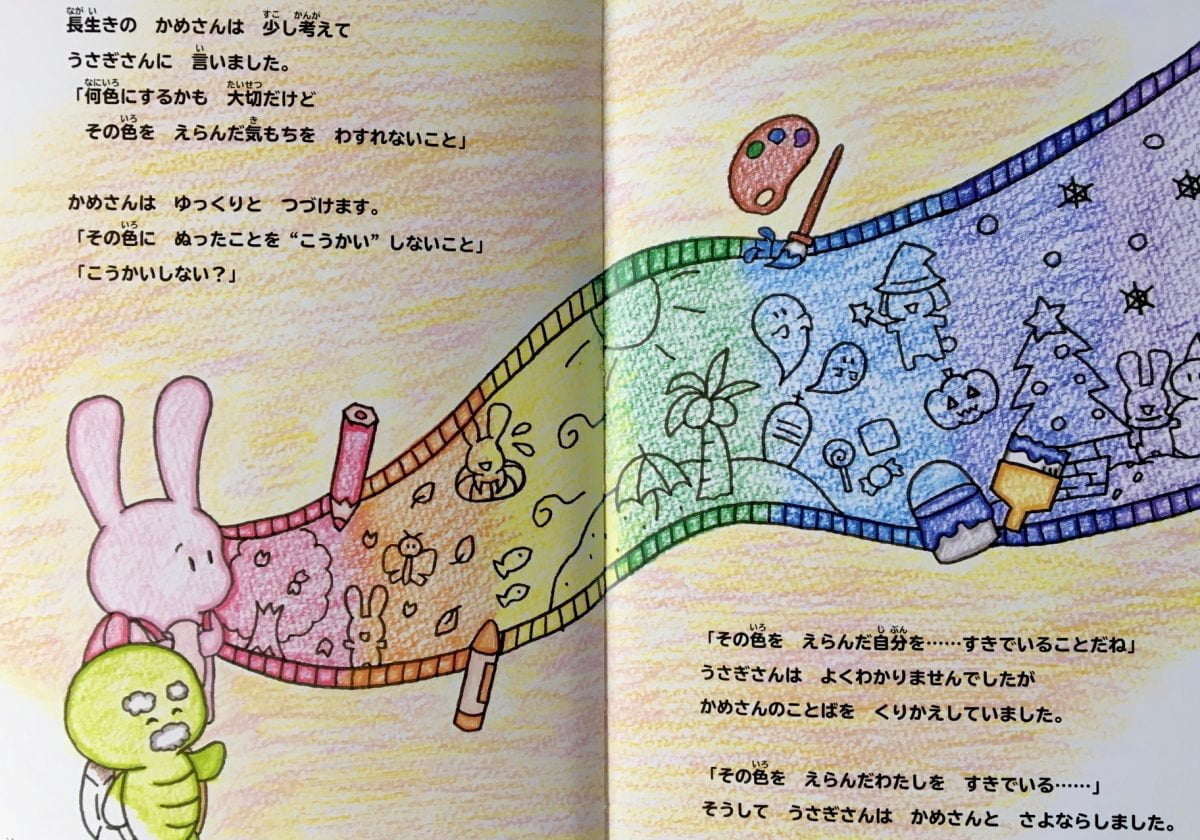 長生きの　かめさんは　少し考えて
うさぎさんに　言いました。
「何色にするかも　大切だけど
その色を　えらんだ気もちを　わすれないこと」
かめさんは　ゆっくりと　つづけます。
「その色に　ぬったことを“こうかい”しないこと」
「こうかいしない？」
「その色を　えらんだ自分を……すきでいることだね」
うさぎさんは　よくわかりませんでしたが
かめさんのことばを　くりかえしていました。
「その色を　えらんだわたしを　すきでいる……」
そうして　うさぎさんは　かめさんと　さよならしました。